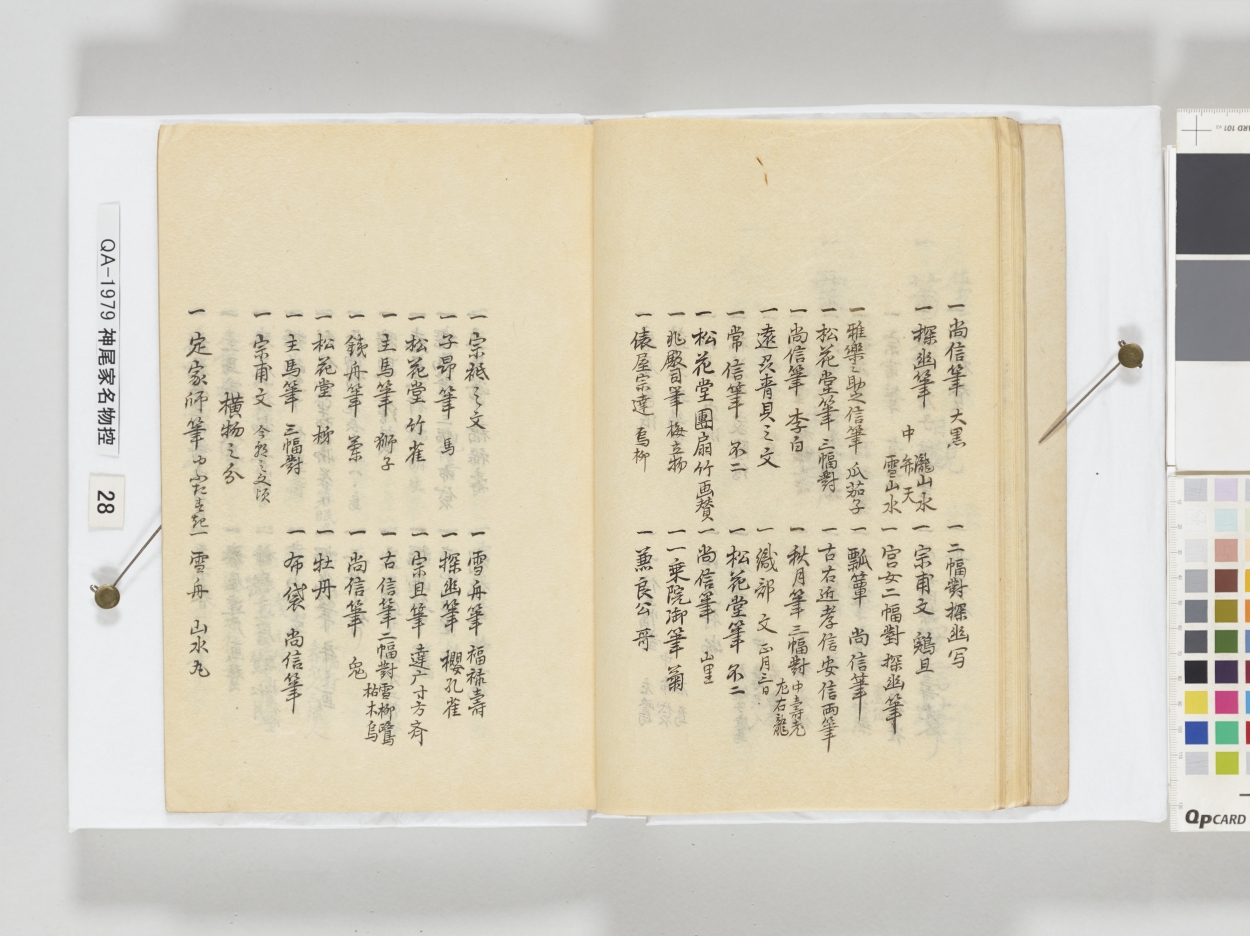 一 尚信筆 大黒
一 二幅對探幽写
一 探幽筆 中 瀧山水 弁天 雪山水
一 宗甫文 鶏旦
一 宮女二幅對 探幽筆
一 雅樂之助之信筆 瓜茄子
一 瓢簞 尚信筆
一 松花堂筆 三幅對
一 古右近孝信安信両筆
一 尚信筆 李白
一 秋月筆三幅對 中壽老 左右龍
一 遠州青貝之文
一 織部文 正月三日
一 常信筆 不二
一 松花堂筆 不二
一 松花堂團扇竹画賛
一 尚信筆 山里
一 兆殿司筆 梅立物
一 一乗院御筆 菊
一 俵屋宗達 烏柳
一 兼良公哥
一 宗祇之文
一 雪舟筆 福禄壽
一 子昂筆 馬
一 探幽筆 櫻孔雀
一 松花堂 竹雀
一 宗旦筆 達广寸方斉
一 主馬筆 獅子
一 古信筆二幅對 雪柳鷺 枯木烏
一 銭舟筆
一 尚信筆 兎
一 松花堂 栁
一 牡丹
一 主馬筆 三幅對
一 布袋 尚信筆
一 宗甫文
横物之分
一 定家師筆
一 雪舟 山水丸
QA-1979 神尾家名物控
28
QPCARD
CARD 101